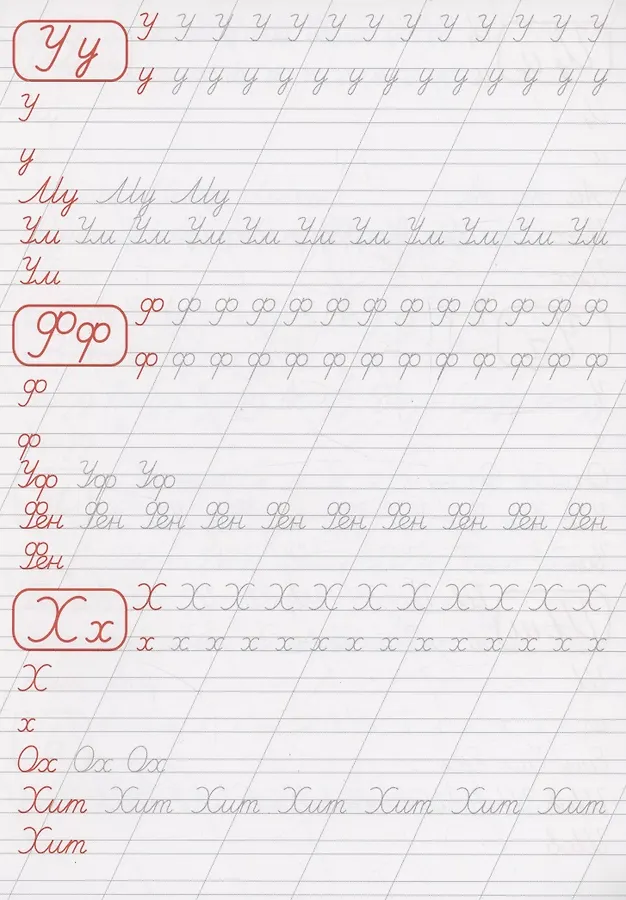 Уу
У У У У У У У У У У У У У
у у у у у у у у у у у у у у
У
у
Му Му Му
Ум Ум Ум Ум Ум Ум Ум Ум Ум Ум Ум
Ум
Фф
Ф Ф Ф Ф Ф Ф Ф Ф Ф Ф Ф Ф Ф
ф ф ф ф ф ф ф ф ф ф ф ф ф
Ф
ф
Уф Уф Уф
Фен Фен Фен Фен Фен Фен Фен Фен Фен Фен
Фен
Хх
Х Х Х Х Х Х Х Х Х Х Х
х х х х х х х х х х х х х х
Х
х
Ох Ох Ох
Хит Хит Хит Хит Хит Хит Хит
Хит